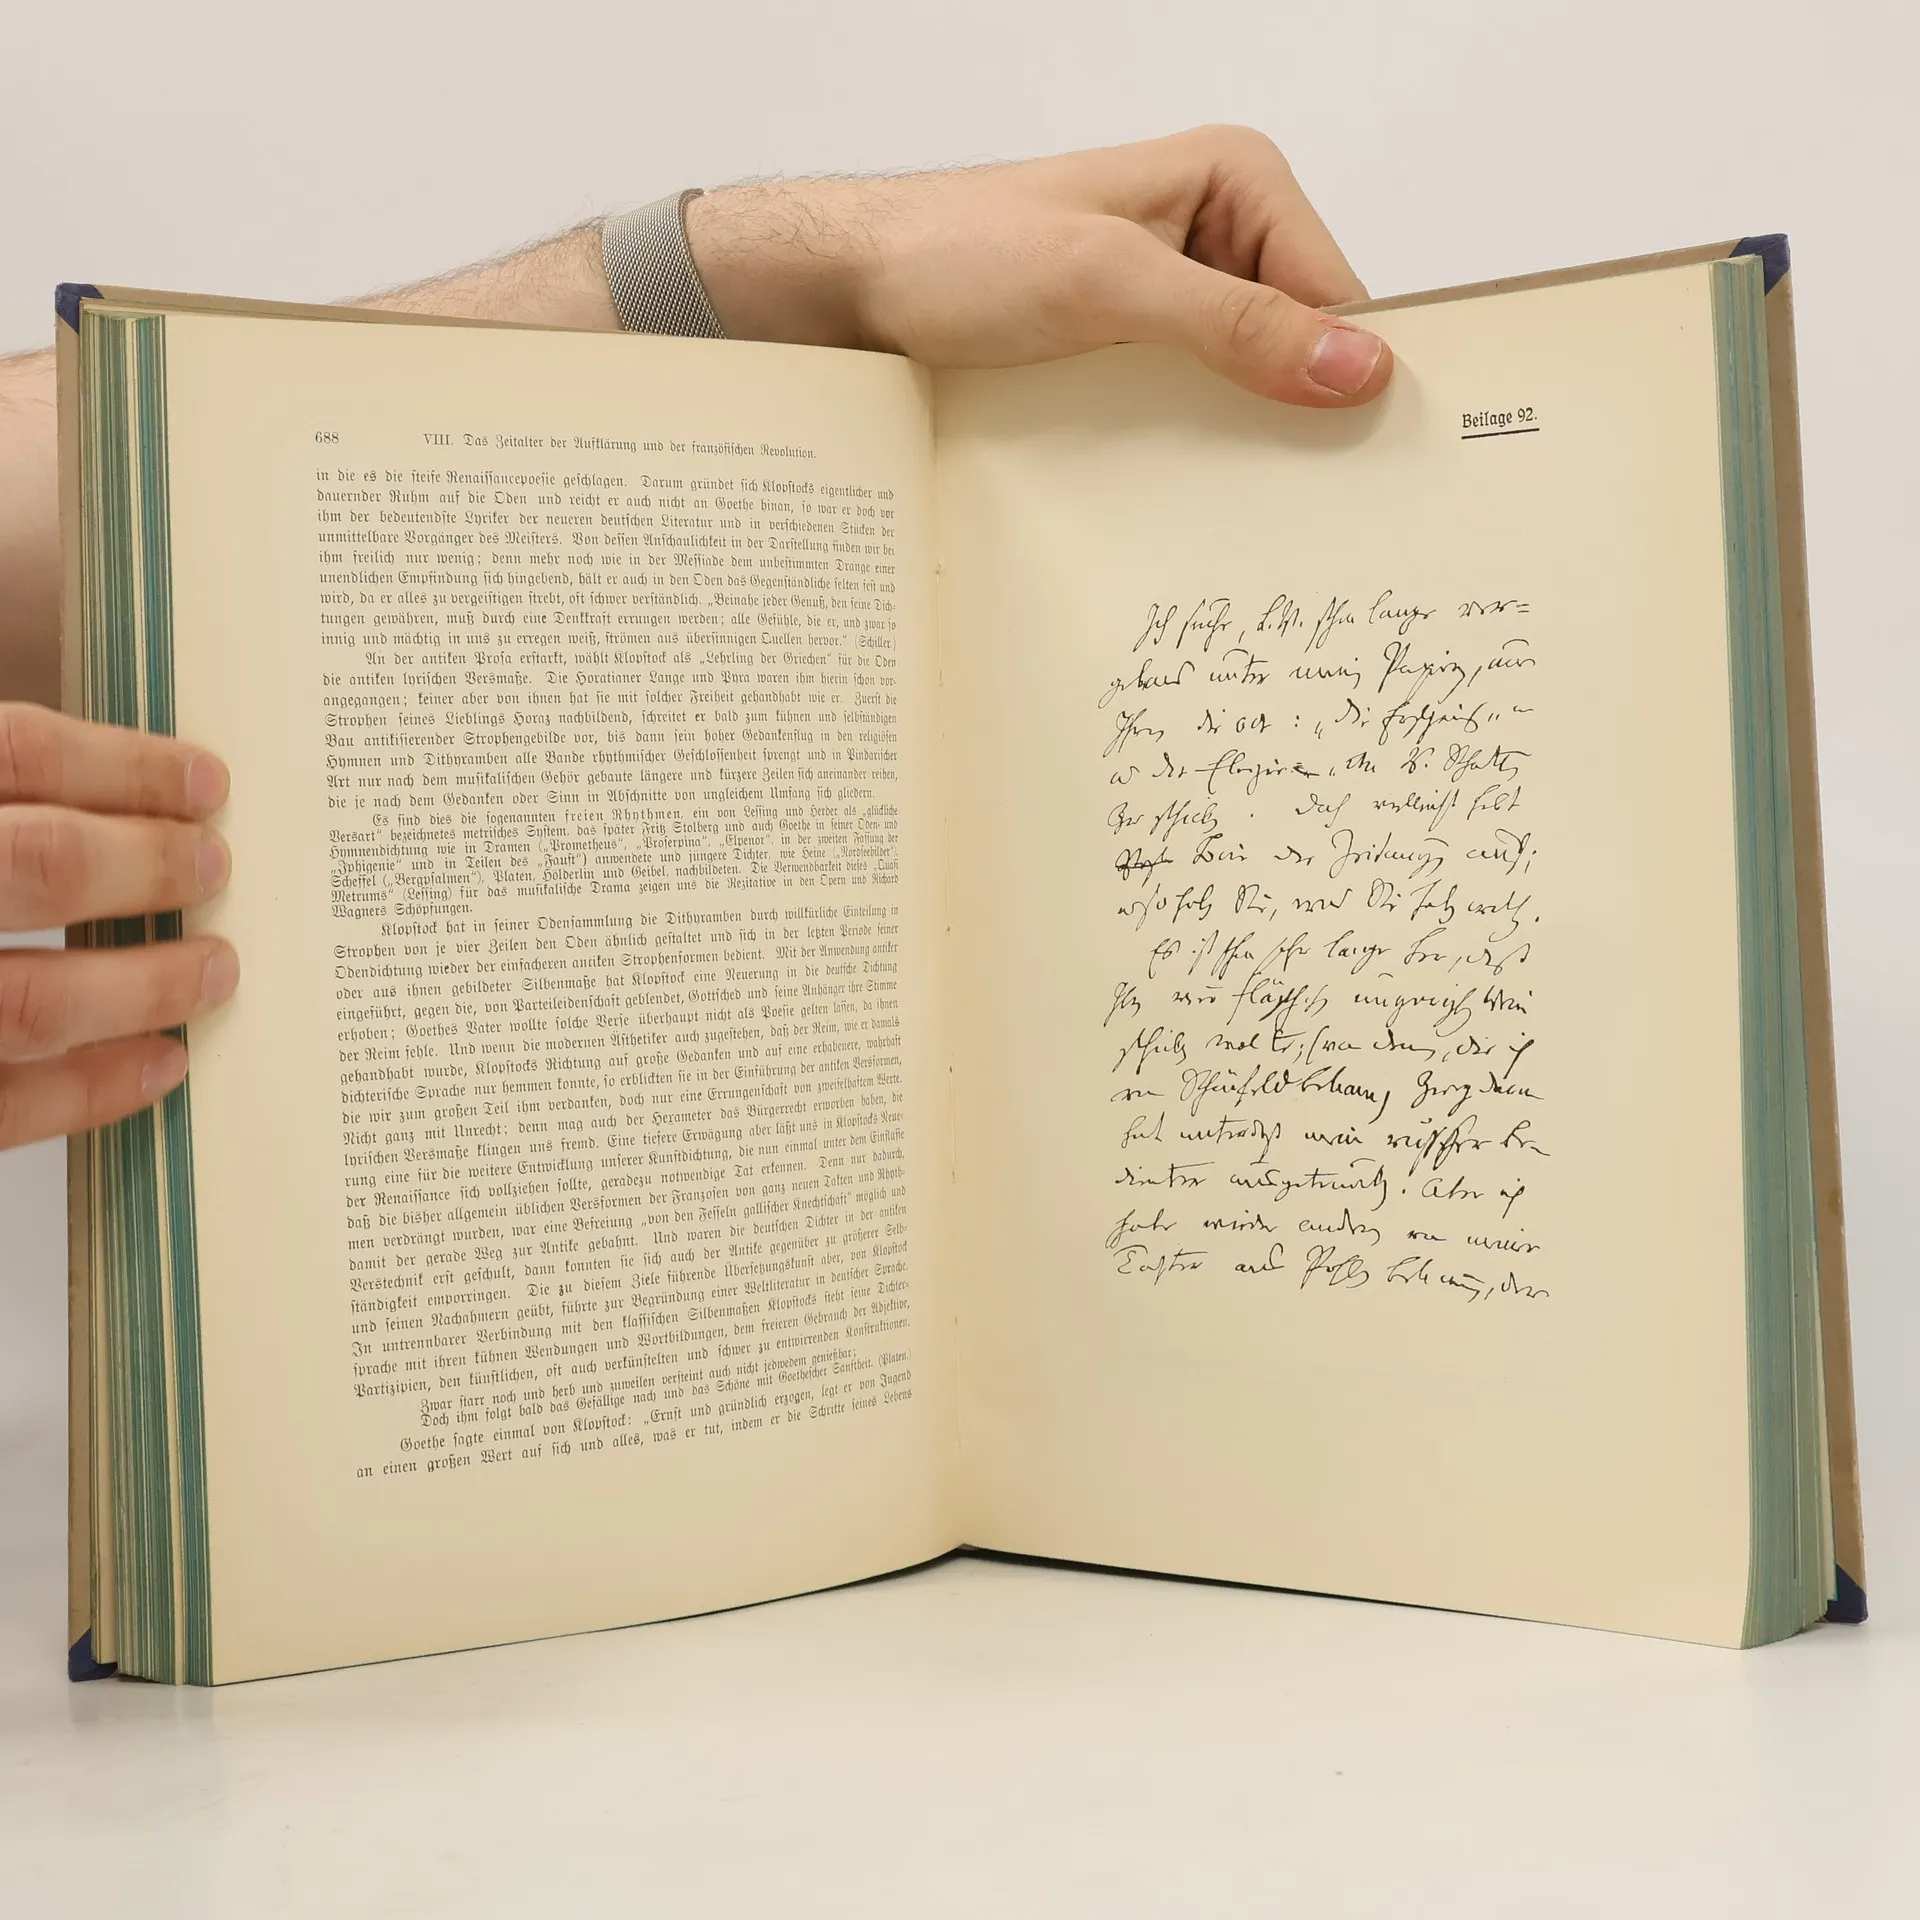 688 VIII. Das Zeitalter der Aufklärung und der französischen Revolution.
in die es die steife Renaissancepoesie geschlagen. Darum gründet sich Klopstocks eigentlicher und
dauernder Ruhm auf die Oden und reicht er auch nicht an Goethe hinan, so war er doch vor
ihm der bedeutendste Lyriker der neueren deutschen Literatur und in verschiedenen Stücken der
unmittelbare Vorgänger des Meisters. Von dessen Anschaulichkeit in der Darstellung finden wir bei
ihm freilich nur wenig; denn mehr noch wie in der Messiade dem unbestimmten Drange einer
unendlichen Empfindung sich hingebend, hält er auch in den Oden das Gegenständliche selten fest und
wird, da er alles zu vergeistigen strebt, oft schwer verständlich. „Beinahe jeder Genuß, den seine Dich-
tungen gewähren, muß durch eine Denkkraft errungen werden; alle Gefühle, die er, und zwar so
innig und mächtig in uns zu erregen weiß, strömen aus übersinnigen Quellen hervor.“ (Schiller.)
An der antiken Prosa erstarkt, wählt Klopstock als „Lehrling der Griechen“ für die Oden
die antiken lyrischen Versmaße. Die Horatianer Lange und Pyra waren ihm hierin schon vor-
angegangen; keiner aber von ihnen hat sie mit solcher Freiheit gehandhabt wie er. Zuerst die
Strophen seines Lieblings Horaz nachbildend, schreitet er bald zum kühnen und selbständigen
Bau antikisierender Strophengebilde vor, bis dann sein hoher Gedankenflug in den religiösen
Hymnen und Dithyramben alle Bande rhythmischer Geschlossenheit sprengt und in Pindarischer
Art nur nach dem musikalischen Gehör gebaute längere und kürzere Zeilen sich aneinander reihen,
die je nach dem Gedanken oder Sinn in Abschnitte von ungleichem Umfang sich gliedern.
Es sind dies die sogenannten freien Rhythmen, ein von Lessing und Herder als „glückliche
Versart“ bezeichnetes metrisches System, das später Fritz Stolberg und auch Goethe in seiner Oden- und
Hymnendichtung wie in Dramen („Prometheus“, „Proserpina“, „Elpenor“, in der zweiten Fassung der
„Iphigenie“ und in Teilen des „Faust“) anwendete und jüngere Dichter, wie Heine („Nordseebilder“,
Scheffel („Bergpsalmen“), Platen, Hölderlin und Geibel, nachbildeten. Die Verwendbarkeit dieses „Quasi
Metrums“ (Lessing) für das musikalische Drama zeigen uns die Rezitative in den Opern und Richard
Wagners Schöpfungen.
Klopstock hat in seiner Odensammlung die Dithyramben durch willkürliche Einteilung in
Strophen von je vier Zeilen den Oden ähnlich gestaltet und sich in der letzten Periode seiner
Odendichtung wieder der einfacheren antiken Strophenformen bedient. Mit der Anwendung antiker
oder aus ihnen gebildeter Silbenmaße hat Klopstock eine Neuerung in die deutsche Dichtung
eingeführt, gegen die, von Parteileidenschaft geblendet, Gottsched und seine Anhänger ihre Stimme
erhoben; Goethes Vater wollte solche Verse überhaupt nicht als Poesie gelten lassen, da ihnen
der Reim fehle. Und wenn die modernen Ästhetiker auch zugestehen, daß der Reim, wie er damals
gehandhabt wurde, Klopstocks Richtung auf große Gedanken und auf eine erhabenere, wahrhaft
dichterische Sprache nur hemmen konnte, so erblickten sie in der Einführung der antiken Versformen,
die wir zum großen Teil ihm verdanken, doch nur eine Errungenschaft von zweifelhaftem Werte.
Nicht ganz mit Unrecht; denn mag auch der Hexameter das Bürgerrecht erworben haben, die
lyrischen Versmaße klingen uns fremd. Eine tiefere Erwägung aber läßt uns in Klopstocks Neue-
rung eine für die weitere Entwicklung unserer Kunstdichtung, die nun einmal unter dem Einflusse
der Renaissance sich vollziehen sollte, geradezu notwendige Tat erkennen. Denn nur dadurch,
daß die bisher allgemein üblichen Versformen der Franzosen von ganz neuen Takten und Rhyth-
men verdrängt wurden, war eine Befreiung „von den Fesseln gallischer Knechtschaft“ möglich und
damit der gerade Weg zur Antike gebahnt. Und waren die deutschen Dichter in der antiken
Verstechnik erst geschult, dann konnten sie sich auch der Antike gegenüber zu größerer Selb-
ständigkeit emporringen. Die zu diesem Ziele führende Übersetzungskunst aber, von Klopstock
und seinen Nachahmern geübt, führte zur Begründung einer Weltliteratur in deutscher Sprache.
In untrennbarer Verbindung mit den klassischen Silbenmaßen Klopstocks steht seine Dichter-
sprache mit ihren kühnen Wendungen und Wortbildungen, dem freieren Gebrauch der Adjektive,
Partizipien, den künstlichen, oft auch verkünstelten und schwer zu entwirrenden Konstruktionen.
Zwar starr noch und herb und zuweilen versteint auch nicht jedwedem genießbar;
Doch ihm folgt bald das Gefällige nach und das Schöne mit Goethescher Sanftheit. (Platen.)
Goethe sagte einmal von Klopstock: „Ernst und gründlich erzogen, legt er von Jugend
an einen großen Wert auf sich und alles, was er tut, indem er die Schritte seines Lebens
Beilage 92.
Ich suche, schon lange ver-
gebens unter meinen Papieren, um
Ihnen die
der Elegie
zu schicken. Doch vielleicht hebt
der Zeitungen auf;
also holen Sie, was Sie haben wollen.
Es ist schon sehr lange her, daß
Ihnen Wein
schicken wollte; (von dem, die ich
von Schönfeld bekam,
hat unterdeß mein russischer Be-
dienter ausgetrunken. Aber ich
habe wieder andern von meiner
Tochter aus bekommen, der